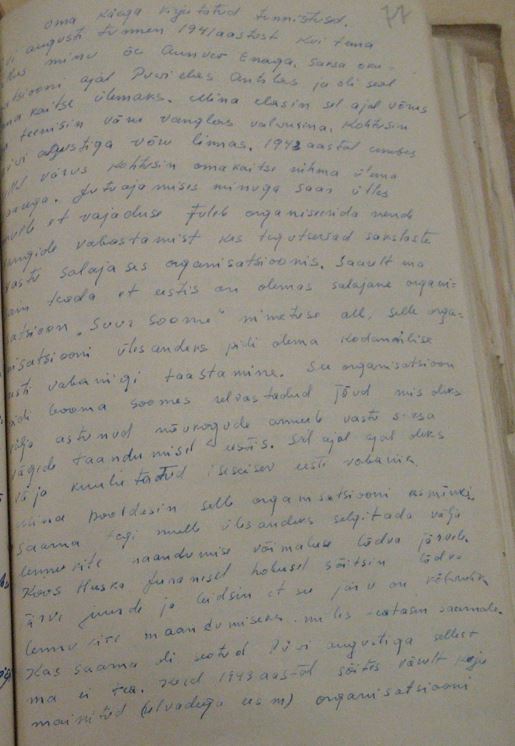 77
oma käega kirjutatud tunnistused.
augusti tunnen 1941 aastast kui tema
minu õe Aunver Enaga. saksa oku-
atsiooni ajal Puviches Antslas ja oli seal
oma kaitse ülemaks. Mina elasin sel ajal võrus
teenisin võru vanglas valvurina. Kohtusin
augustiga võru linnas. 1943 aastal umbes
võrus kohtusin omakaitse rühma ülema
saarega. Jutuajamises minuga Saar ütles
mulle et vajaduse tuleb organiseerida nende
vangide vabastamist kes tegutsevad sakslaste
vastu salajases organisatsioonis. Saarelt ma
sain teada et eestis on olemas salajane organi-
satsioon "Suur Soome" nimetuse all, selle orga-
nisatsiooni ülesandeks pidi olema kodanlise
eesti vabariigi taastamine. See organisatsioon
pidi looma soomes relvastadud jõud mis oleks
välja astunud nõukogude armee vastu saksa
vägide taandumisel eestis. Sel ajal ajal oleks
välja kuulutatud iseseisev eesti vabariik
Mina pooldasin selle organisatsiooni
saarma tegi mulle ülesandeks selgitada välja
lennukite maandumise võimaluse lõdva järvele.
Koos Huska Juhanisel hobusel sõitsin lõdva
järve juurde ja leidsin et see järv on kõlbulik
lennukite maandumiseks. saarmale.
Kas saarma oli seotud Püvi augustiga sellest
ma ei tea. Kord 1943 aastal sõites võrult koju
mainitud organisatsiooni